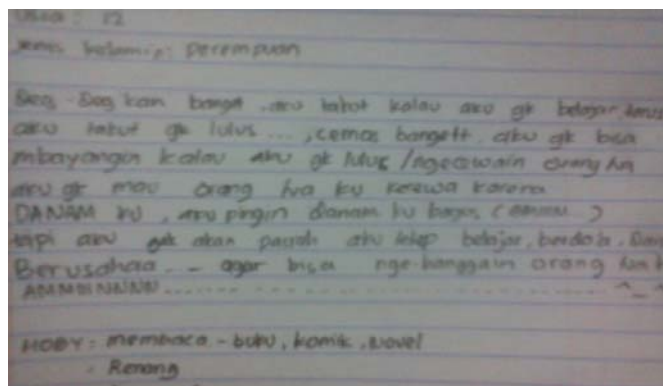 Usia : 12
Jenis kelamin : perempuan
Deg - Deg kan banget .aku takut kalau aku gk belajar terus
aku takut gk lulus ... , cemas bangett. aku gk bisa
mbayangin kalau aku gk lulus / ngecewain orang tua
aku gk mau orang tua ku kecewa karena
DANAM ku , aku pingin danam ku bagus
tapi aku gak akan pasrah aku tetep belajar, berdo'a , Dan
Berusahaa - agar bisa nge-banggain orang tua
AMMIINNNNN ................ ^_^
HOBY : membaca - buku , komik , Novel
- Renang